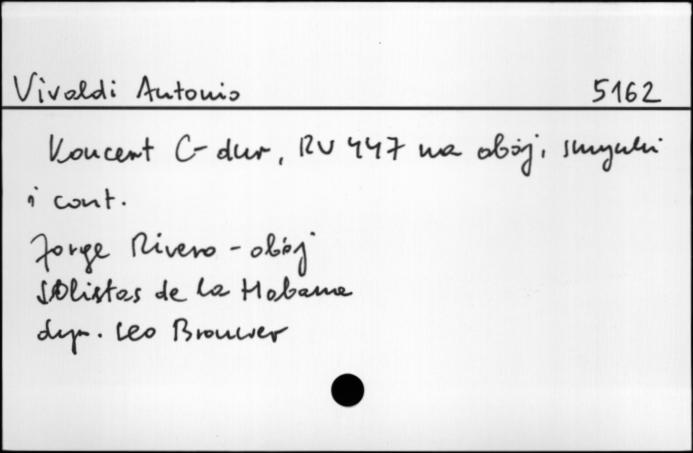 Vivaldi Antonio 5162
Koncert C-dur, RV 447 na obój, smyczki
i cont.
Jorge Rivero - obój
Solistas de La Habana
dyr. Leo Brouwer